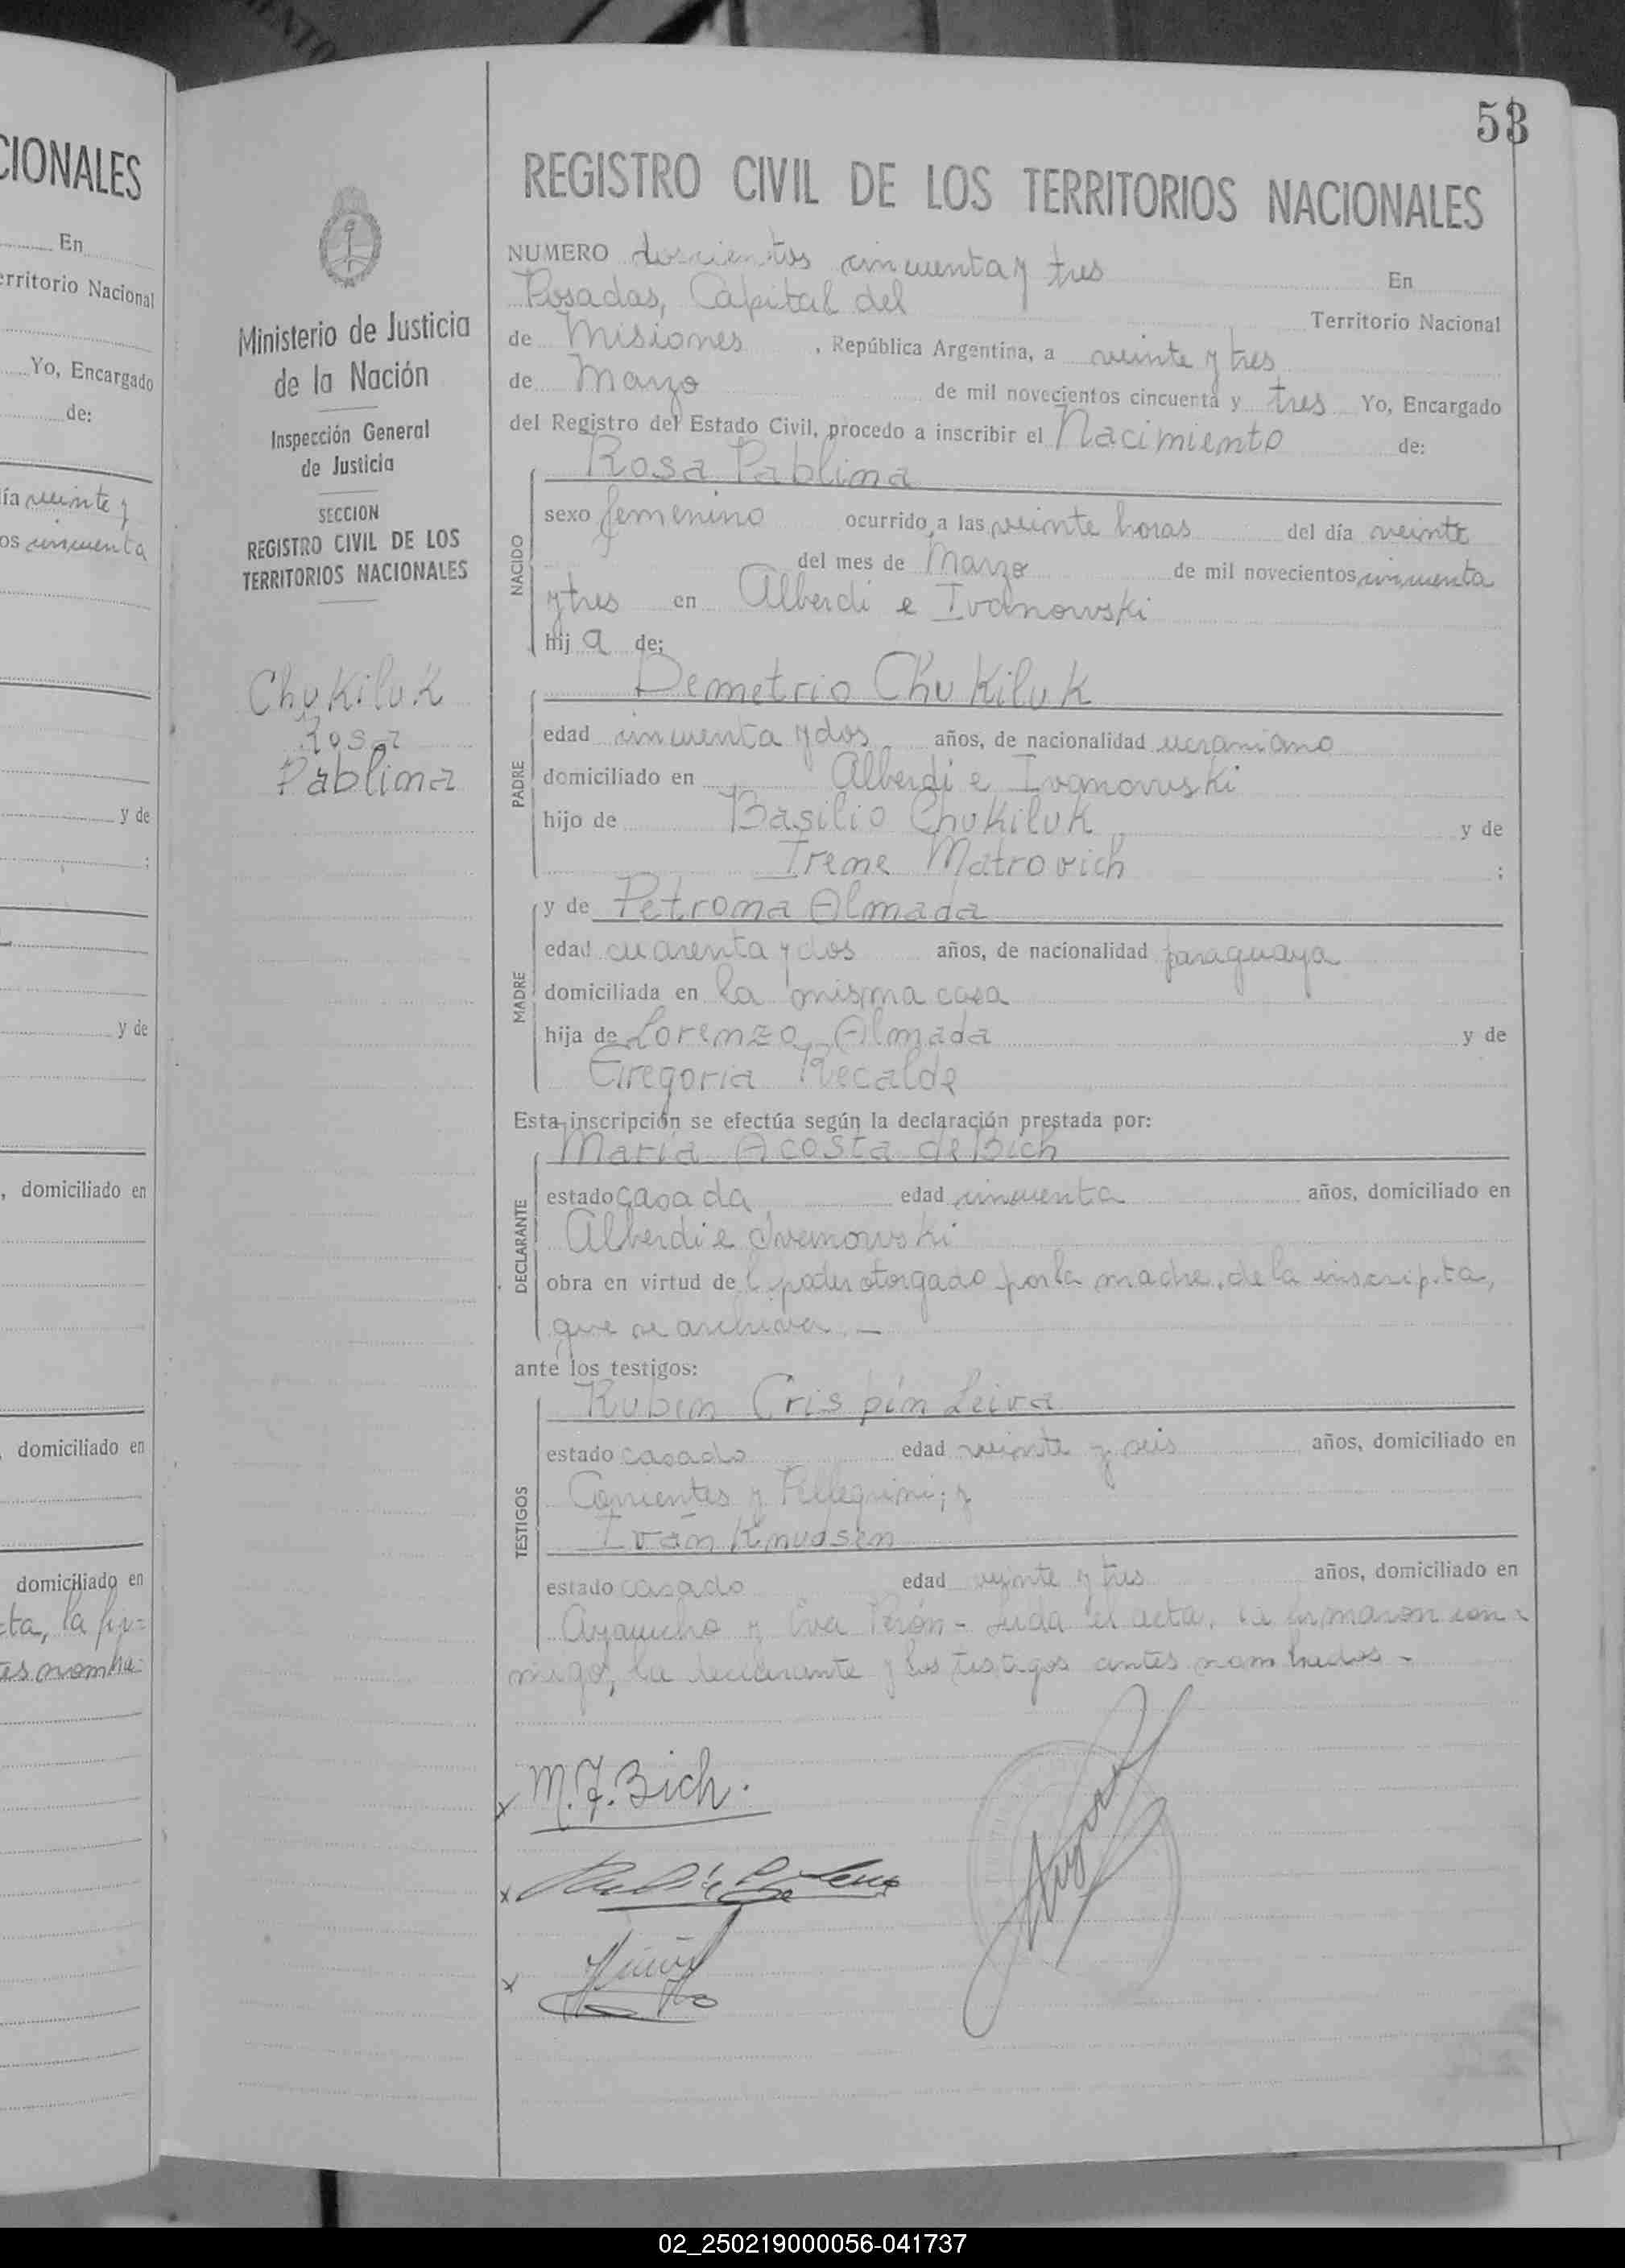 CIONALES
En
erritorio Nacional
Yo, Encargado
de:
ía veinte y
os cincuenta
y de
;
y de
, domiciliado en
domiciliado en
domiciliado en
cta, la fir=
tes nombra=
Ministerio de Justicia
de la Nación
Inspección General
de Justicia
SECCION
REGISTRO CIVIL DE LOS
TERRITORIOS NACIONALES
Chukiluk
Rosa
Pablina
53
REGISTRO CIVIL DE LOS TERRITORIOS NACIONALES
NUMERO doscientos cincuenta y tres En
Posadas, Capital del Territorio Nacional
de Misiones, República Argentina, a veinte y tres
de Marzo de mil novecientos cincuenta y tres Yo, Encargado
del Registro del Estado Civil, procedo a inscribir el Nacimiento de:
Rosa Pablina
NACIDO
sexo femenino ocurrido a las veinte horas del día veinte
del mes de Marzo de mil novecientos cincuenta
y tres en Alberdi e Ivanowski
hij a de:
Demetrio Chukiluk
PADRE
edad cincuenta y dos años, de nacionalidad ucraniano
domiciliado en Alberdi e Ivanowski
hijo de Basilio Chukiluk y de
Irene Matrovich ;
MADRE
y de Petrona Almada
edad cuarenta y dos años, de nacionalidad paraguaya
domiciliada en la misma casa
hija de Lorenzo Almada y de
Gregoria Recalde
Esta inscripción se efectúa según la declaración prestada por:
María Acosta de Bich
DECLARANTE
estado casada edad cincuenta años, domiciliado en
Alberdi e Ivanowski
obra en virtud del poder otorgado por la madre de la inscripta,
que se archiva.—
ante los testigos:
Rubén Crispín Leiva
TESTIGOS
estado casado edad veinte y seis años, domiciliado en
Corrientes y Pellegrini; y
Iván Knudsen
estado casado edad veinte y tres años, domiciliado en
Ayacucho y Eva Perón - Leida el acta, la firmaron con=
migo, la declarante y los testigos antes nombrados -
M. F. Bich.
02_250219000056-041737